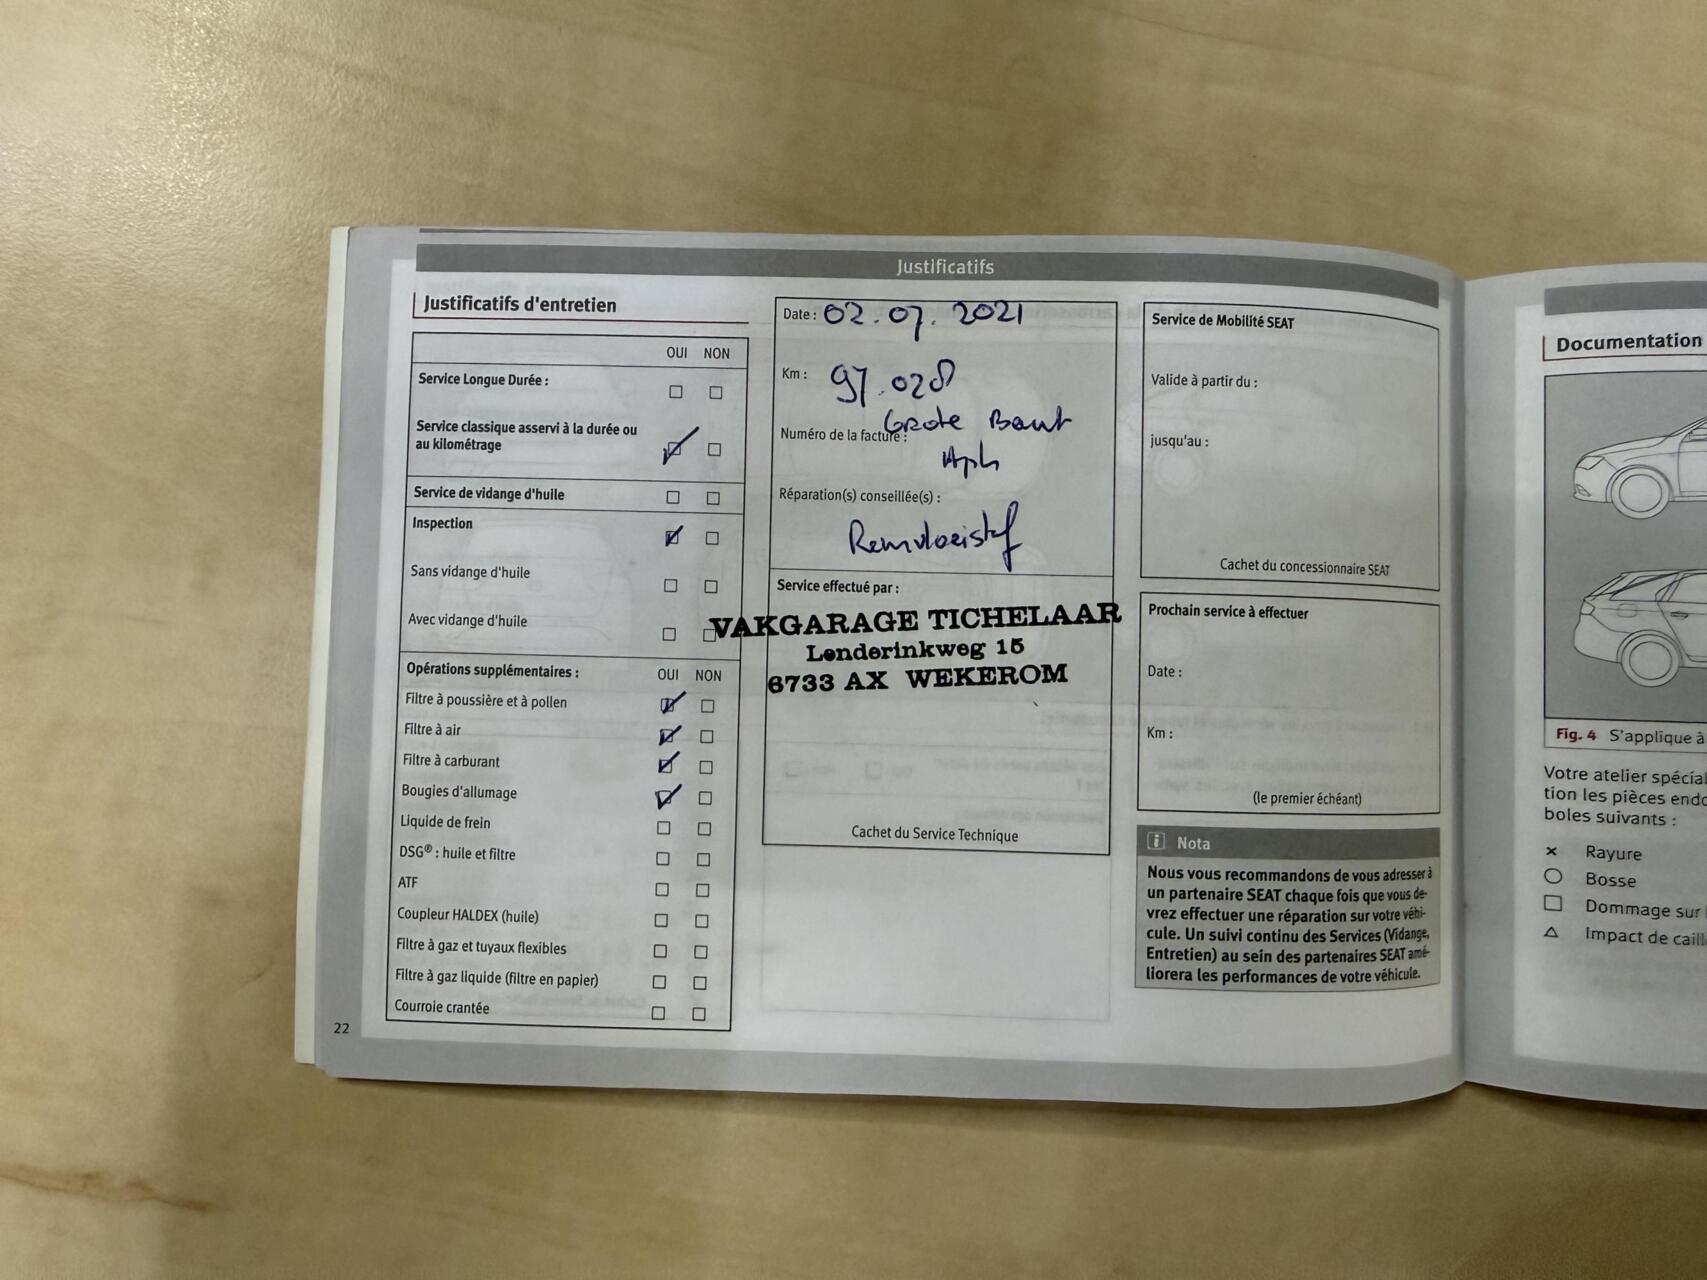 Justificatifs
Justificatifs d'entretien
OUI NON
Service Longue Durée :
Service classique asservi à la durée ou
au kilométrage
Service de vidange d'huile
Inspection
Sans vidange d'huile
Avec vidange d'huile
Opérations supplémentaires : OUI NON
Filtre à poussière et à pollen
Filtre à air
Filtre à carburant
Bougies d'allumage
Liquide de frein
DSG® : huile et filtre
ATF
Coupleur HALDEX (huile)
Filtre à gaz et tuyaux flexibles
Filtre à gaz liquide (filtre en papier)
Courroie crantée
22
Date : 02.07.2021
Km : 97.028
Grote Beurt
Numéro de la facture :
Réparation(s) conseillée(s) :
Remvloeistof
Service effectué par :
VAKGARAGE TICHELAAR
Lenderinkweg 15
6733 AX WEKEROM
Cachet du Service Technique
Service de Mobilité SEAT
Valide à partir du :
jusqu'au :
Cachet du concessionnaire SEAT
Prochain service à effectuer
Date :
Km :
(le premier échéant)
i Nota
Nous vous recommandons de vous adresser à
un partenaire SEAT chaque fois que vous de-
vrez effectuer une réparation sur votre véhi-
cule. Un suivi continu des Services (Vidange,
Entretien) au sein des partenaires SEAT amé-
liorera les performances de votre véhicule.
Documentation
Fig. 4 S'applique à
Votre atelier spécial
tion les pièces endo
boles suivants :
Rayure
Bosse
Dommage sur
Impact de caill